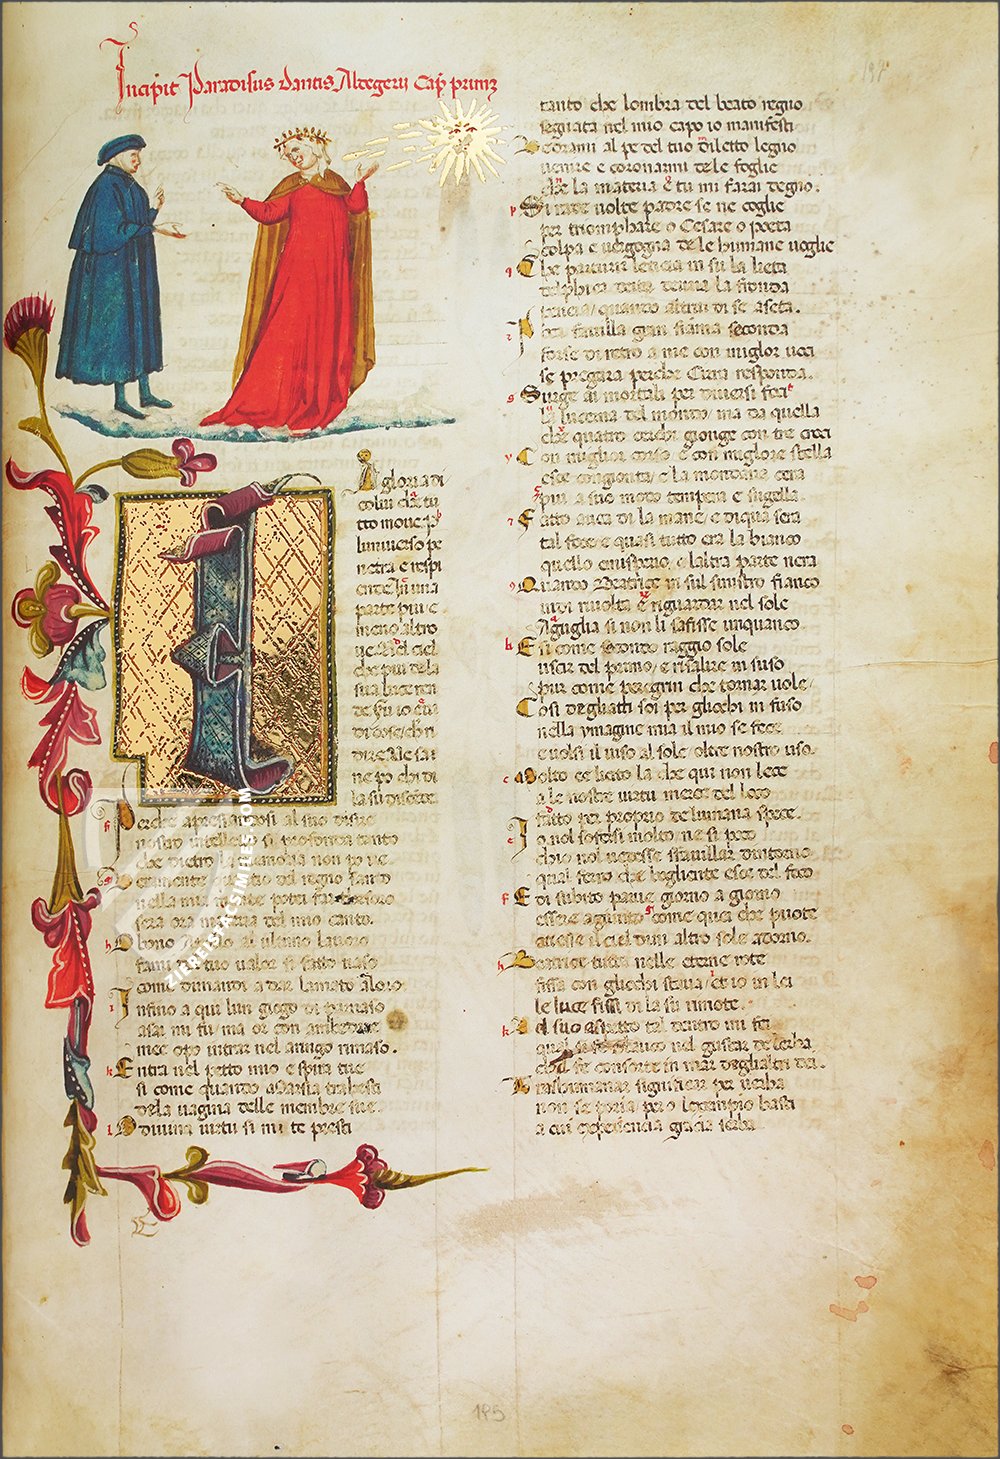 Incipit Paradisus dantis Altegerii Cap primum
197
A gloria di
colui che tu
tto moue p
luniuerso pe
netra e respl
ende in una
parte piu e
meno altro
ue Nel ciel
che piu dela
sua luce ren
de fu io e ui
di cose che ri
dire Ne sa ni
ne po chi di
la su discende
Perche apresandosi al suo disire
nostro intelletto si profonda tanto
che dietro la memoria non po ire
Veramente quanto del regno santo
nella mia mente potei far thesoro
sera ora materia del mio canto.
O bono Apollo al ultimo lauoro
fami del tuo ualor si fatto uaso
come dimandi a dar lamato Aloro
Infino a qui lun giogo di parnaso
asai mi fu / ma or con ambedue
mee opo intrar nel aringo rimaso.
Entra nel petto mio e spira tue
si come quando Marsia trahesti
dela uagina delle membre sue.
O diuina uirtu si mi te presti
tanto che lombra del beato regno
segnata nel mio capo io manifesti
Vedrami al pe del tuo diletto legno
uenire e coronarmi dele foglie
che la materia e tu mi farai degno.
Si rade uolte padre se ne coglie
per triomphare o Cesare o poeta
colpa e uergogna de le humane uoglie
Che parturir leticia in su la lieta
delphica deita deuria la fronda
peneia / quando alcun di se aseta.
Poca fauilla gran fiama seconda
forse di retro a me con miglor uoci
se pregara perche Cirra responda.
Surge ai mortali per diuersi foci
la lucerna del mondo / ma da quella
che quatro cerchi gionge con tre croci
Con miglior corso e con migliore stella
esce congionta / e la mondana cera
piu a suo modo tempera e sugella.
Fatto auea di la mane / e di qua sera
tal foce / e quasi tutto era la bianco
quello emisperio / e laltra parte nera
Quando Beatrice in sul sinistro fianco
uidi riuolta e riguardar nel sole
Aguglia si non li safisse unquanco
E si come secondo raggio sole
uscir del primo / e risalire in suso
pur come peregrin che tornar uole /
Cosi degliatti soi per gliochi in fuso
nella ymagine mia il mio se fece
e uolsi il uiso al sole / oltre nostro uso.
Molto ee licito la che qui non lece
a le nostre uirtu merce del loco
fatto per proprio de lumana spece.
Io nol soffersi molto ne si poco
chio nol uedesse sfauillar dintorno
qual ferro che bogliente esce del foco
E di subito parue giorno a giorno
essere agiunto come quei che puote
auesse il ciel dun altro sole adorno.
Beatrice tutta nelle eterne rote
fissa con gliochi staua / et io in lei
le luce fissi di la su rimote.
Nel suo aspetto tal dentro mi fei
qual si fe Glauco nel gustar delerba
che l fe consorte in mar deglialtri dei.
Trashumanar significar per uerba
non se poria pero lexempio basti
a cui experiencia gracia serba
ZIEREIS FACSIMILES.COM
195